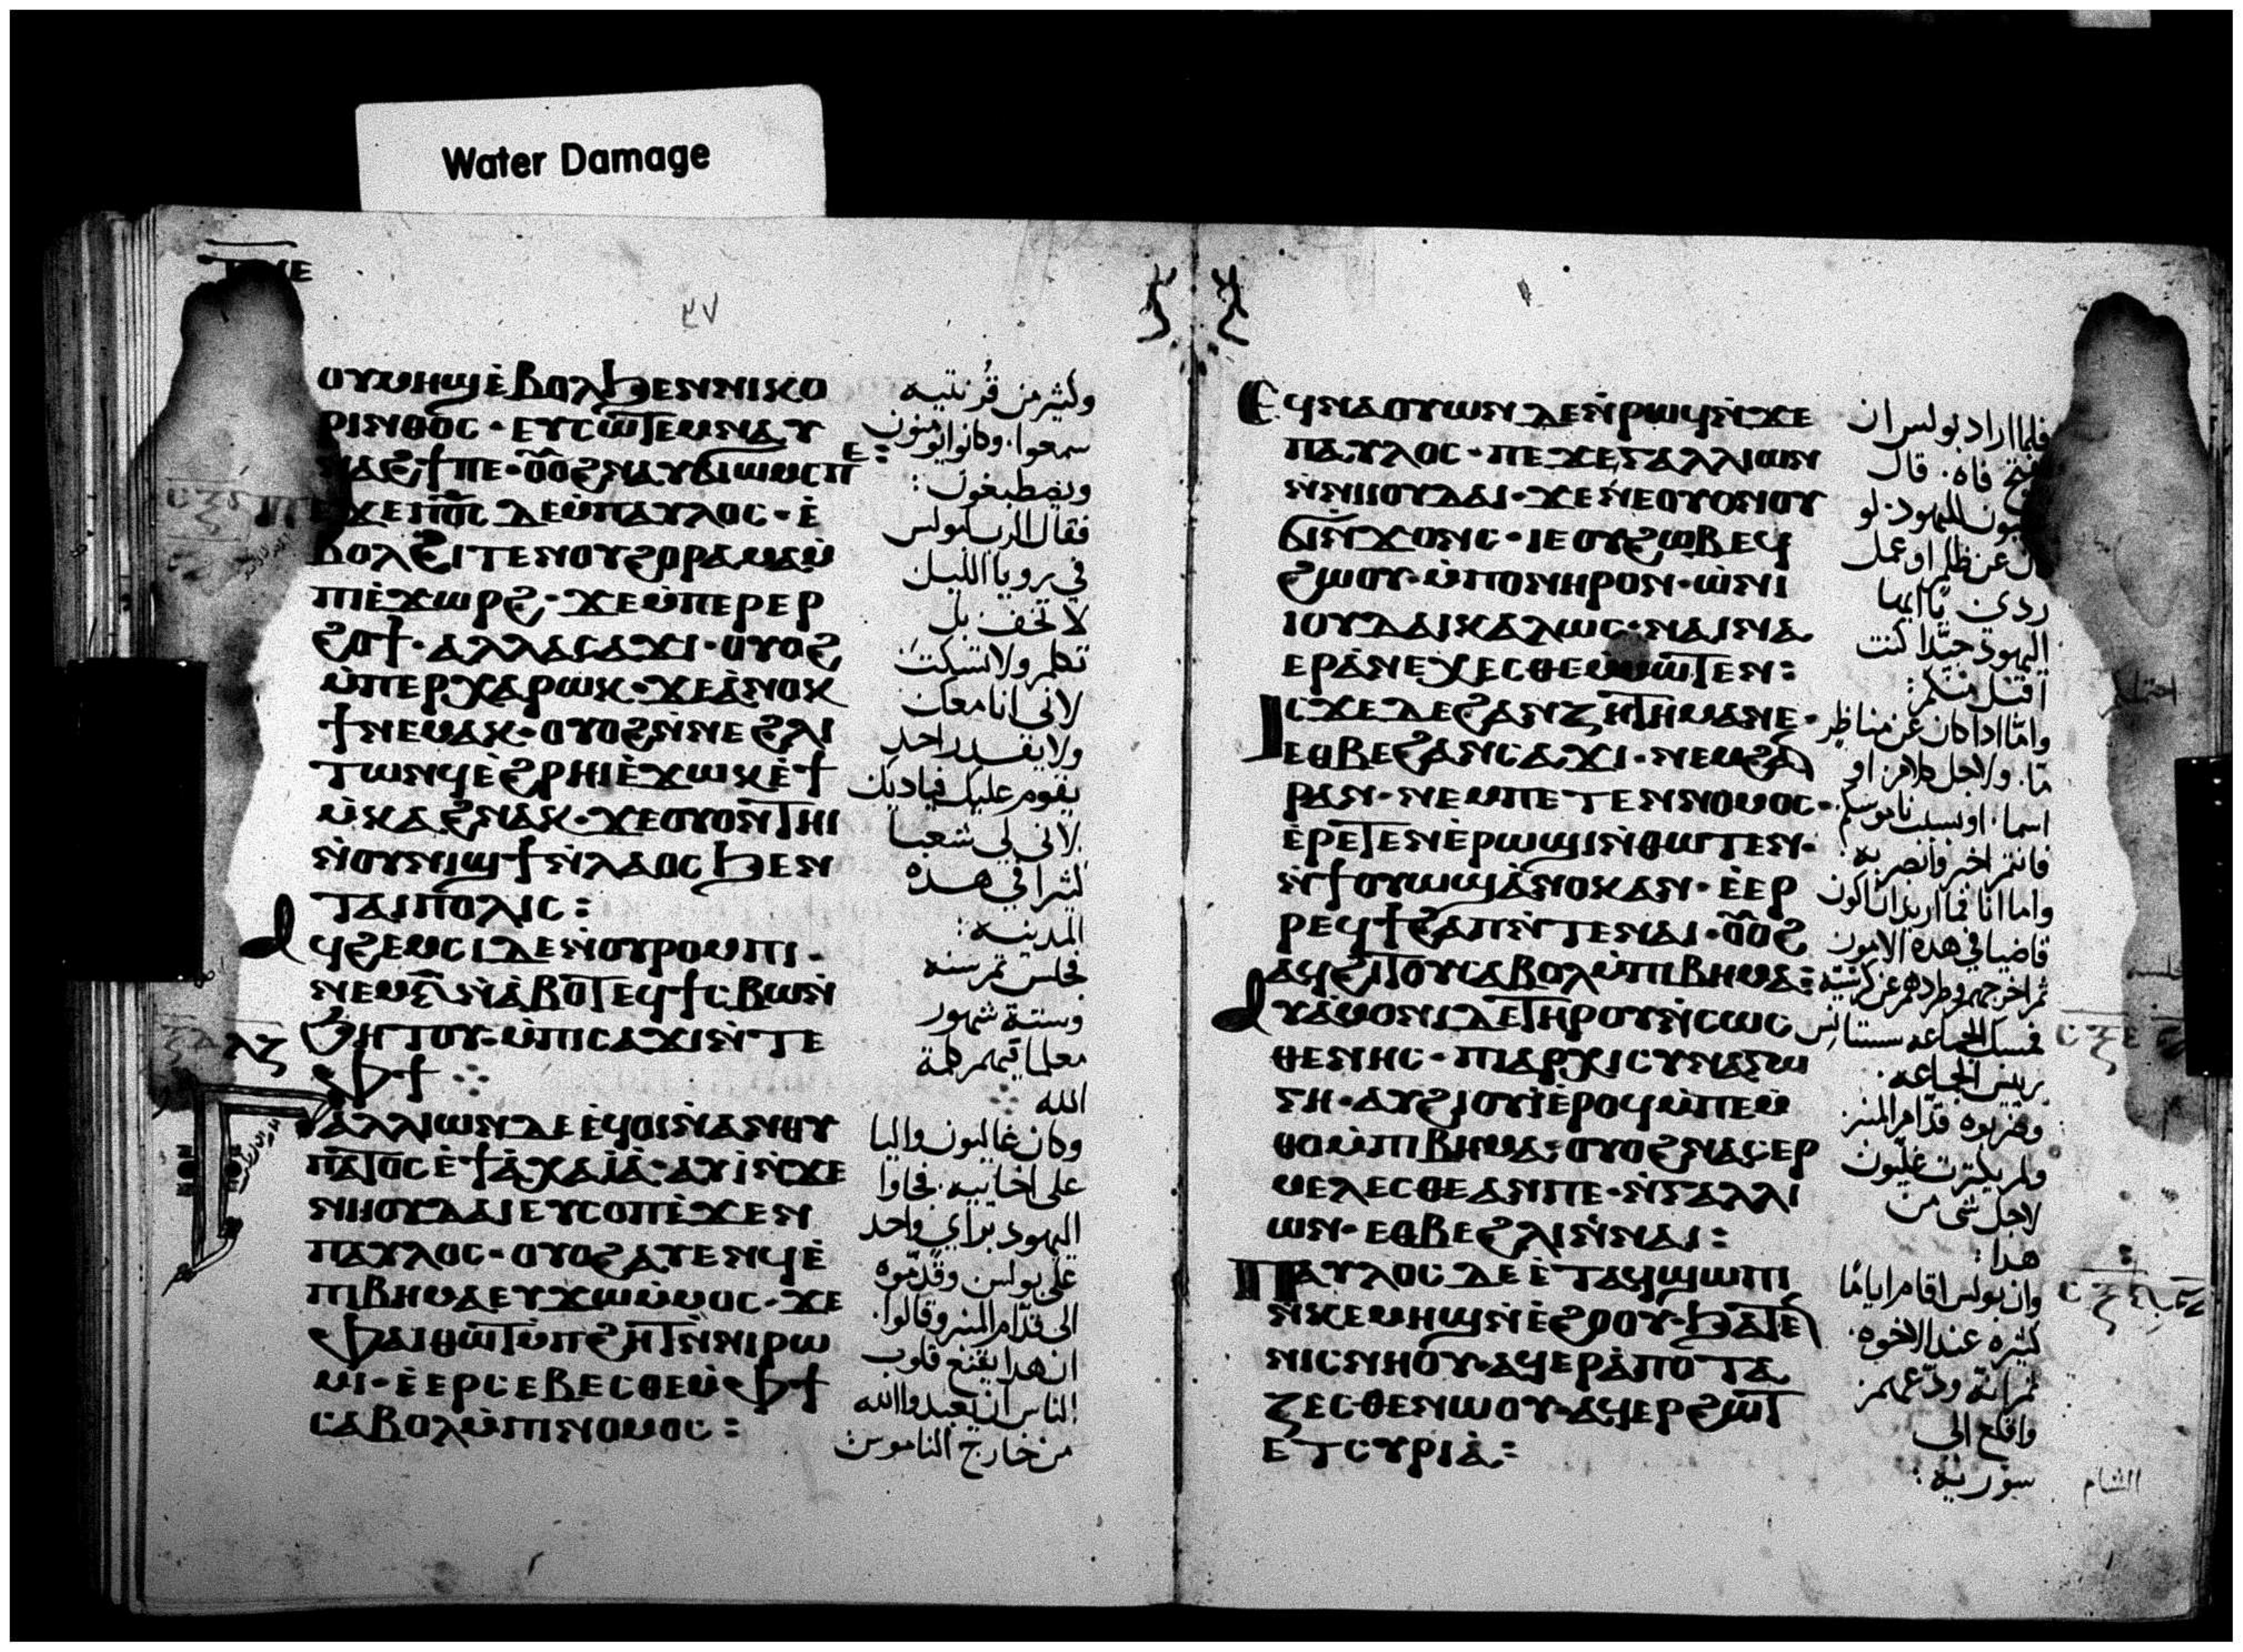 Water Damage
٣٧
ⲟⲩⲙⲏϣ ⲉ̀ⲃⲟⲗ ϧⲉⲛⲛⲓⲕⲟ
ⲣⲓⲛⲑⲟⲥ · ⲉⲩⲥⲱⲧⲉⲙ ⲛⲁⲩ
ⲛⲁϩϯⲡⲉ · ⲟⲩⲟϩ ⲛⲁⲩϭⲓⲱⲙⲥ ⲡⲉ:
ⲡⲉϫⲉ ⲡϭⲥ ⲇⲉ ⲙ̀ⲡⲁⲩⲗⲟⲥ · ⲉ̀
ⲃⲟⲗϩⲓⲧⲉⲛ ⲟⲩϩⲟⲣⲁⲙⲁ ⲙ̀
ⲡⲓⲉ̀ϫⲱⲣϩ · ϫⲉ ⲙ̀ⲡⲉⲣⲉⲣ
ϩⲟϯ · ⲁⲗⲗⲁ ⲥⲁϫⲓ · ⲟⲩⲟϩ
ⲙ̀ⲡⲉⲣⲭⲁⲣⲱⲕ · ϫⲉ ⲁ̀ⲛⲟⲕ
ϯⲛⲉⲙⲁⲕ · ⲟⲩⲟϩ ⲛ̀ⲛⲉ ϩⲗⲓ
ⲧⲱⲛϥ ⲉ̀ϩⲣⲏⲓ ⲉ̀ϫⲱⲕ ⲉ̀ϯ
ⲙ̀ⲕⲁϩ ⲛⲁⲕ · ϫⲉ ⲟⲩⲟⲛ̀ⲧⲏⲓ
ⲛ̀ⲟⲩⲛⲓϣϯ ⲛ̀ⲗⲁⲟⲥ ϧⲉⲛ
ⲧⲁⲓⲡⲟⲗⲓⲥ:
ⲁϥϩⲉⲙⲥⲓ ⲇⲉ ⲛ̀ⲟⲩⲣⲟⲙⲡⲓ ·
ⲛⲉⲙ ⲋ̅ ⲛ̀ⲁ̀ⲃⲟⲧ ⲉϥϯⲥⲃⲱ ⲛ̀
ϧⲏⲧⲟⲩ · ⲙ̀ⲡⲓⲥⲁϫⲓ ⲛ̀ⲧⲉ
ⲫϯ
ⲅⲁⲗⲗⲓⲱⲛ ⲇⲉ ⲉ̀ϥⲟⲓ ⲛ̀ⲁⲛⲑⲩ
ⲡⲁⲧⲟⲥ ⲉ̀ϯⲁ̀ⲭⲁⲓ̀ⲁ̀ · ⲁⲩⲓ̀ ⲛ̀ϫⲉ
ⲛⲓⲓⲟⲩⲇⲁⲓ ⲉⲩⲥⲟⲡ ⲉ̀ϫⲉⲛ
ⲡⲁⲩⲗⲟⲥ · ⲟⲩⲟϩ ⲁⲩⲉⲛϥ ⲉ̀
ⲡⲓⲃⲏⲙⲁ ⲉⲩϫⲱ ⲙ̀ⲙⲟⲥ · ϫⲉ
ⲫⲁⲓ ⲑⲱⲧ ⲙ̀ⲡϩⲏⲧ ⲛ̀ⲛⲓⲣⲱ
ⲙⲓ · ⲉ̀ⲉⲣⲥⲉⲃⲉⲥⲑⲉ ⲙ̀ⲫϯ
ⲥⲁⲃⲟⲗ ⲙ̀ⲡⲓⲛⲟⲙⲟⲥ:
وكثير من قرنتيه
سمعوا · وكانوا يومنون
ويصطبغون:
فقال الرب لبولس
في رويا الليل
لا تخف بل
تكلم ولا تسكت
لاني انا معك
ولا يقدر احد
يقوم عليك فياديك
لاني لي شعبا
كثيرا في هذه
المدينه:
فجلس ثم سنه
وستة شهور
معلما فيهم كلمة
الله
وكان غاليون واليا
على اخاييه · فجاوا
اليهود براي واحد
على بولس وقدموه
الى قدام المنبر وقالوا ·
ان هذا يقنع قلوب
الناس ان يعبدوا الله
من خارج الناموس
ⲉϥⲛⲁⲟⲩⲱⲛ ⲇⲉ ⲛ̀ⲣⲱϥ ⲛ̀ϫⲉ
ⲡⲁⲩⲗⲟⲥ · ⲡⲉϫⲉ ⲅⲁⲗⲗⲓⲱⲛ
ⲛ̀ⲛⲓⲓⲟⲩⲇⲁⲓ · ϫⲉ ⲛⲉ ⲟⲩⲟⲛ ⲟⲩ
ϭⲓⲛ̀ϫⲟⲛⲥ · ⲓⲉ ⲟⲩϩⲱⲃ ⲉϥ
ϩⲱⲟⲩ · ⲙ̀ⲡⲟⲛⲏⲣⲟⲛ · ⲱ̀ ⲛⲓ
ⲓⲟⲩⲇⲁⲓ ⲕⲁⲗⲱⲥ · ⲛⲁⲓⲛⲁ
ⲉⲣⲁ̀ⲛⲉⲭⲉⲥⲑⲉ ⲙ̀ⲙⲱⲧⲉⲛ:
ⲓⲥϫⲉ ⲇⲉ ϩⲁⲛⲍⲏⲧⲏⲙⲁ ⲛⲉ ·
ⲉⲑⲃⲉ ϩⲁⲛⲥⲁϫⲓ · ⲛⲉⲙ ϩⲁⲛ
ⲣⲁⲛ · ⲛⲉⲙ ⲡⲉⲧⲉⲛⲛⲟⲙⲟⲥ ·
ⲉ̀ⲣⲉⲧⲉⲛⲉ̀ⲣⲱϣⲓ ⲛ̀ⲑⲱⲧⲉⲛ ·
ⲛ̀ϯⲟⲩⲱϣ ⲁ̀ⲛⲟⲕ ⲁⲛ · ⲉ̀ⲉⲣ
ⲣⲉϥϯϩⲁⲡ ⲛ̀ⲧⲉ ⲛⲁⲓ · ⲟⲩⲟϩ
ⲁϥϩⲓⲧⲟⲩ ⲥⲁⲃⲟⲗ ⲙ̀ⲡⲓⲃⲏⲙⲁ:
ⲁⲩⲁ̀ⲙⲟⲛⲓ ⲇⲉ ⲧⲏⲣⲟⲩ ⲛ̀ⲥⲱⲥ
ⲑⲉⲛⲏⲥ · ⲡⲓⲁⲣⲭⲓⲥⲩⲛⲁⲅⲱ
ⲅⲏ · ⲁⲩϩⲓⲟⲩⲓ̀ ⲉ̀ⲣⲟϥ ⲙ̀ⲡⲉⲙ̀
ⲑⲟ ⲙ̀ⲡⲓⲃⲏⲙⲁ: ⲟⲩⲟϩ ⲛⲁⲥⲉⲣ
ⲙⲉⲗⲉⲥⲑⲉ ⲁⲛⲡⲉ · ⲛ̀ⲅⲁⲗⲗⲓ
ⲱⲛ · ⲉⲑⲃⲉ ϩⲗⲓ ⲛ̀ⲛⲁⲓ:
ⲡⲁⲩⲗⲟⲥ ⲇⲉ ⲉ̀ⲧⲁϥϣⲱⲡⲓ
ⲛ̀ⲕⲉⲙⲏϣ ⲛ̀ⲉ̀ϩⲟⲟⲩ · ϧⲁⲧⲉⲛ
ⲛⲓⲥⲛⲏⲟⲩ · ⲁϥⲉⲣⲁ̀ⲡⲟⲧⲁ
ⲍⲉⲥⲑⲉ ⲛⲱⲟⲩ · ⲁϥⲉⲣϩⲱⲧ
ⲉⲧⲥⲩⲣⲓⲁ̀:
فلما اراد بولس ان
فاه · قال
لليهود · لو
عن ظلم او عمل
ردى ما ايها
اليهود جيدا كنت
اقتبل منكم:
واما اذا كان عن مناظر
ما · ولاجل كلام او
اسما · او بسبب ناموسكم
فانتم اخبر وابصر به:
واما انا فما اريد ان اكون
قاضيا في هذه الامور
ثم اخرجهم وطردهم عن كرسيه:
فمسك الجماعه سستانس
رييس الجماعه ·
وضربوه قدام المنبر
ولم يكترث غليون
لاجل شى من
هذا:
وان بولس اقام اياما
كثيره عند الاخوه ·
ثم انه ودعهم
واقلع الى
سورية:
الشام